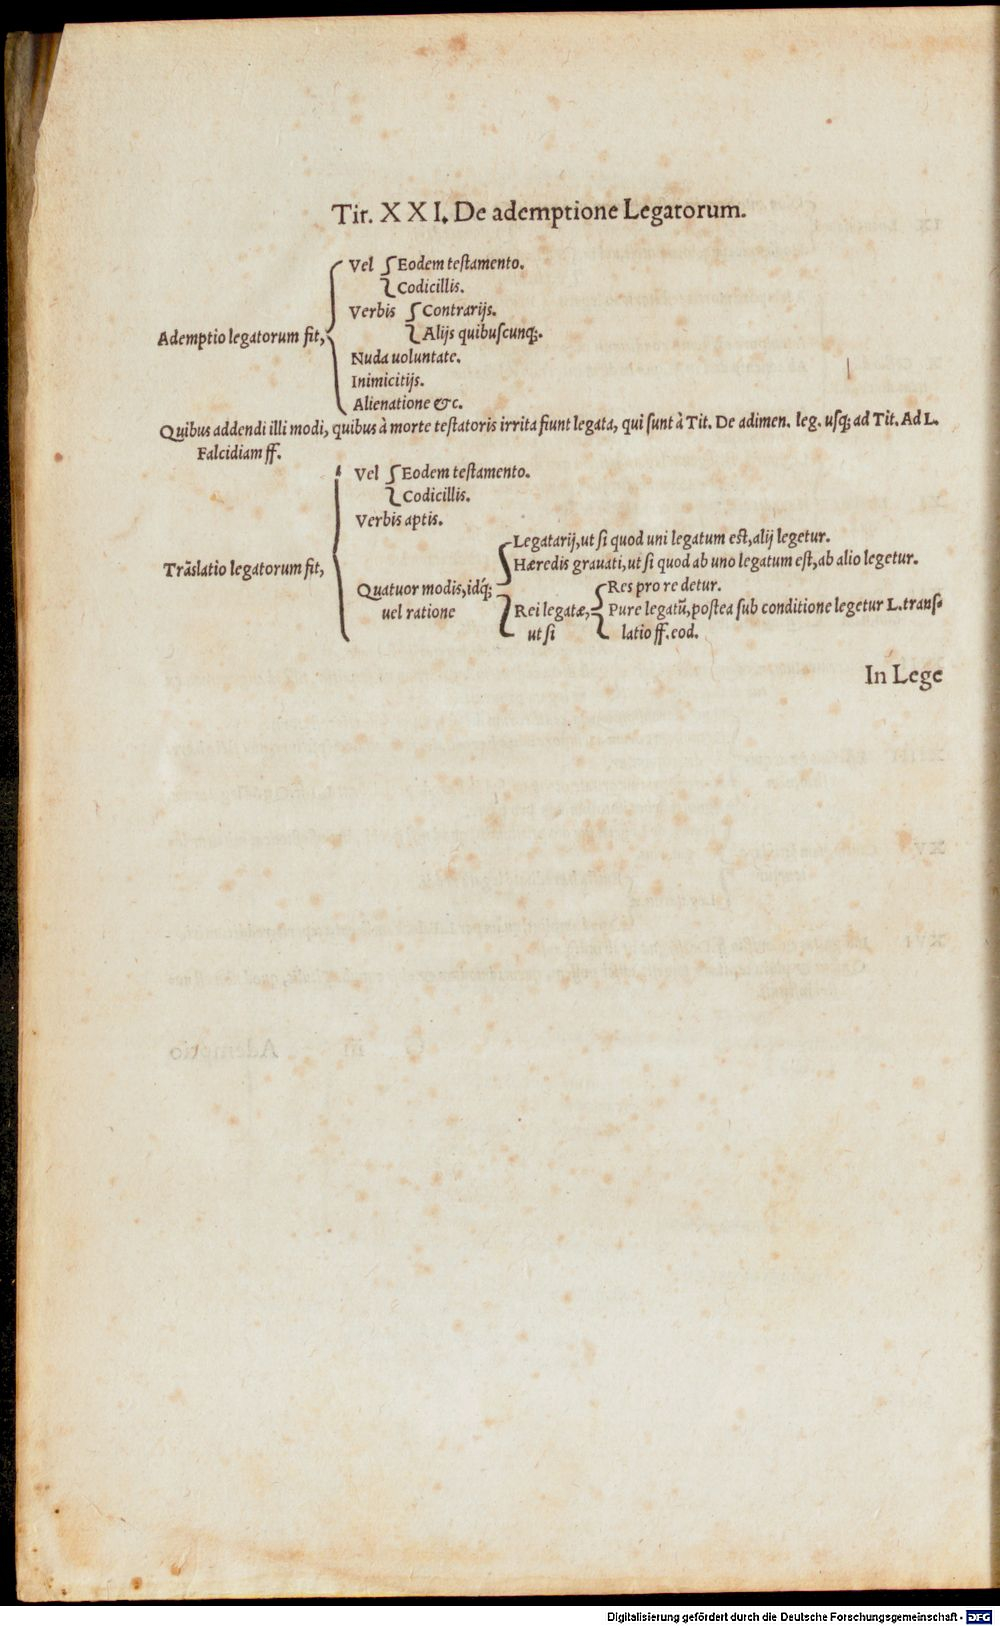 Tit. XXI. De ademptione Legatorum.
Vel Eodem testamento.
Codicillis.
Verbis Contrarijs.
Alijs quibuscunq;.
Ademptio legatorum fit,
Nuda uoluntate.
Inimicitijs.
Alienatione &c.
Quibus addendi illi modi, quibus à morte testatoris irrita fiunt legata, qui sunt à Tit. De adimen. leg. usq; ad Tit. Ad L.
Falcidiam ff.
Vel Eodem testamento.
Codicillis.
Verbis aptis.
Trãslatio legatorum fit,
Legatarij, ut si quod uni legatum est, alij legetur.
Hæredis grauati, ut si quod ab uno legatum est, ab alio legetur.
Quatuor modis, idq́;
uel ratione
Res pro re detur.
Rei legatæ,
ut si
Pure legatũ, postea sub conditione legetur L. trans-
latio ff. eod.
In Lege
Digitalisierung gefördert durch die Deutsche Forschungsgemeinschaft - DFG